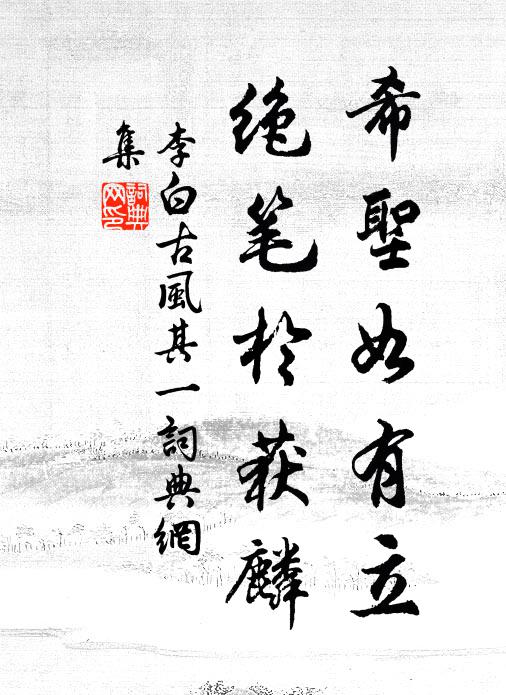 希聖如有立
绝笔於获麟
李白古風其一詞典網
集
詞典网印